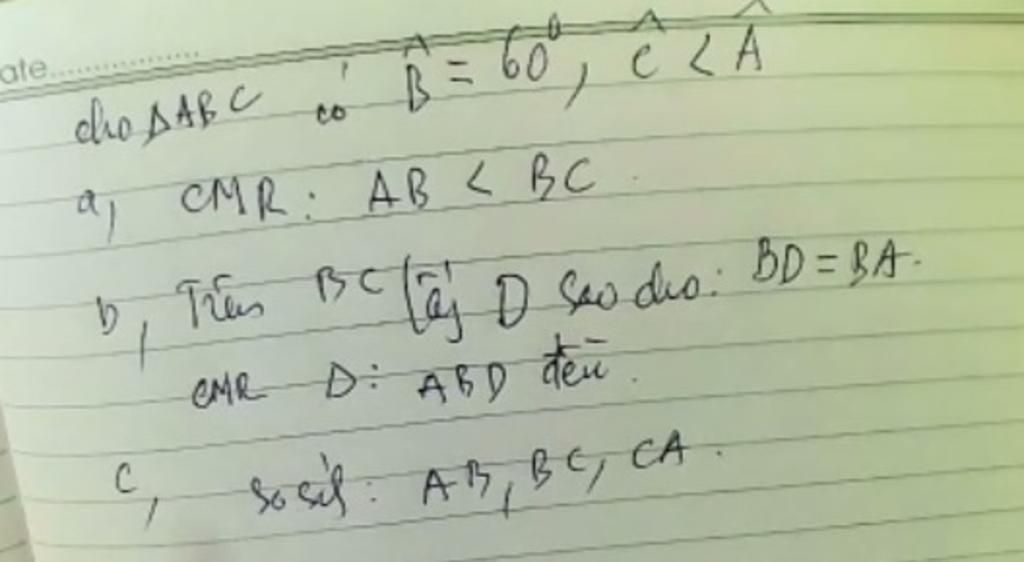 ate...............
cho ΔABC có B̂ = 60⁰, Ĉ < Â
a, CMR: AB < BC.
b, Trên BC lấy D sao cho: BD = BA.
CMR Δ: ABD đều.
c, So sánh: AB, BC, CA.